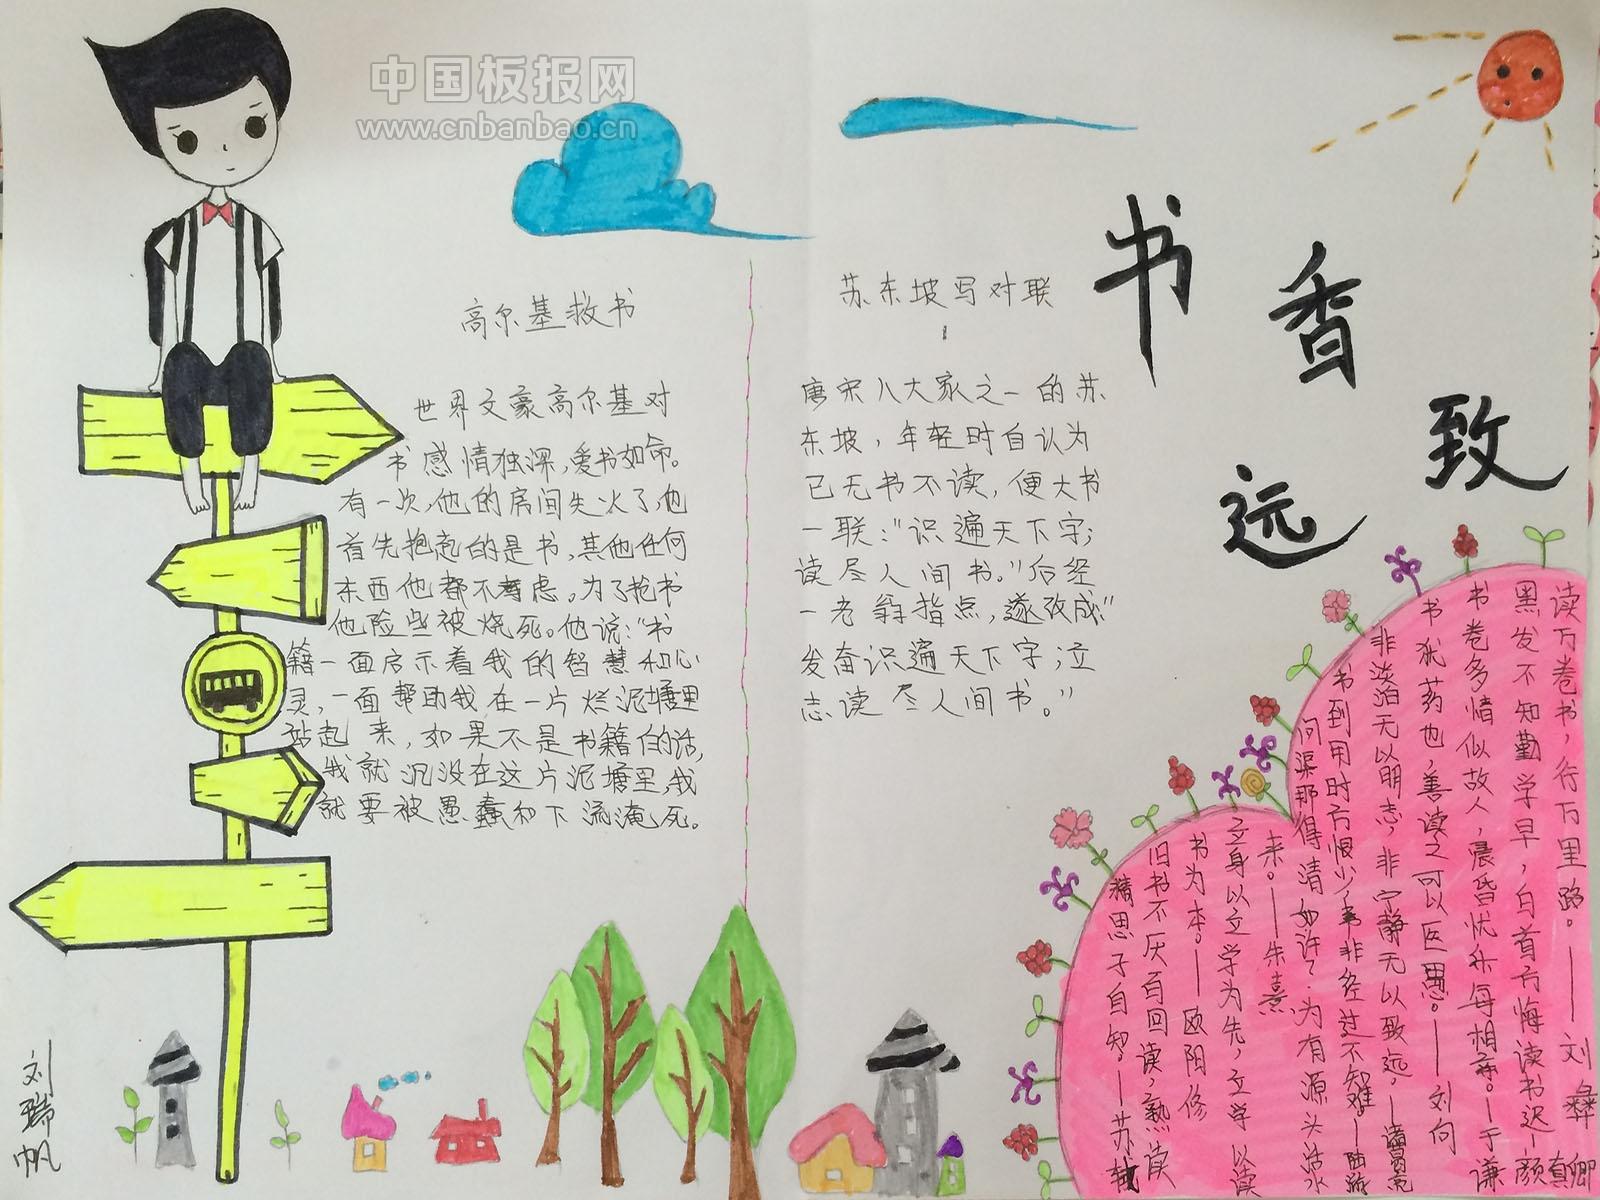 中国板报网
www.cnbanbao.cn
书香致远
高尔基救书
世界文豪高尔基对
书感情独深，爱书如命。
有一次，他的房间失火了，他
首先抱起的是书，其他任何
东西他都不考虑。为了抢书
他险些被烧死。他说：“书
籍一面启示着我的智慧和心
灵，一面帮助我在一片烂泥塘里
站起来，如果不是书籍的话，
我就沉没在这片泥塘里，我
就要被愚蠢和下流淹死。
苏东坡写对联
唐宋八大家之一的苏
东坡，年轻时自认为
已无书不读，便大书
一联：“识遍天下字；
读尽人间书。”后经
一老翁指点，遂改成“
发奋识遍天下字；立
志读尽人间书。”
读万卷书，行万里路。——刘彝
黑发不知勤学早，白首方悔读书迟—颜真卿
书卷多情似故人，晨昏忧乐每相亲。—于谦
书犹药也，善读之可以医愚。——刘向
非淡泊无以明志，非宁静无以致远，—诸葛亮
书到用时方恨少，事非经过不知难。—陆游
问渠那得清如许？为有源头活水
来。——朱熹
立身以立学为先，立学以读
书为本。——欧阳修
旧书不厌百回读，熟读
精思子自知，—苏轼
刘瑞帆